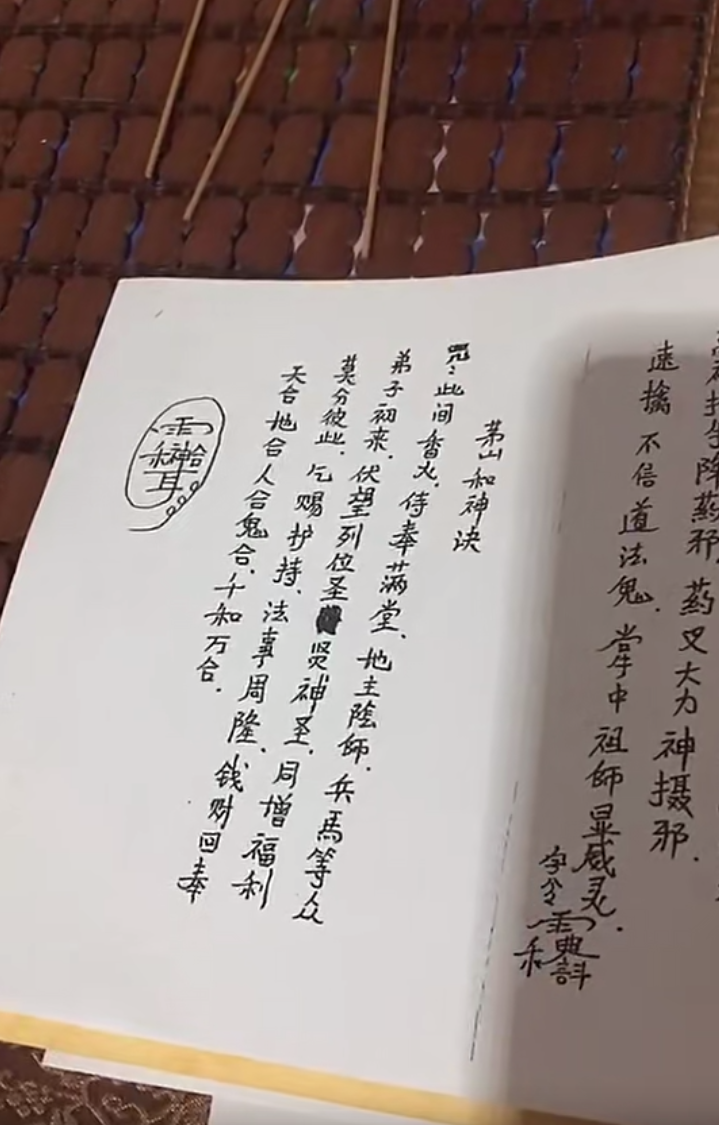 阵蒳邪、药叉大力神摄邪.
速擒不信道法鬼、掌中祖師显威灵.
茅山和神诀
咒:此间香火、侍奉满堂、地主陰師、兵馬等众
弟子初来、伏望列位圣贤神圣、同增福利
莫分彼此、乞赐护持、法事周隆、钱财回奉
天合地合人合鬼合、千和万合.